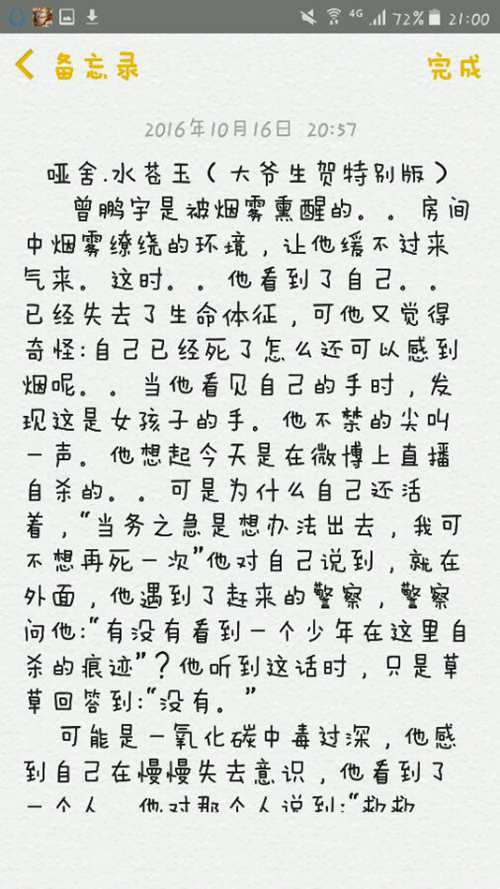 4G 72% 21:00
备忘录 完成
2016年10月16日 20:57
哑舍.水苍玉(大爷生贺特别版)
曾鹏宇是被烟雾熏醒的。。房间
中烟雾缭绕的环境,让他缓不过来
气来。这时。。他看到了自己。。
已经失去了生命体征,可他又觉得
奇怪:自己已经死了怎么还可以感到
烟呢。。当他看见自己的手时,发
现这是女孩子的手。他不禁的尖叫
一声。他想起今天是在微博上直播
自杀的。。可是为什么自己还活
着,“当务之急是想办法出去,我可
不想再死一次”他对自己说到,就在
外面,他遇到了赶来的警察,警察
问他:“有没有看到一个少年在这里自
杀的痕迹”?他听到这话时,只是草
草回答到:“没有。”
可能是一氧化碳中毒过深,他感
到自己在慢慢失去意识,他看到了
一个人,他对那个人说到:“救救